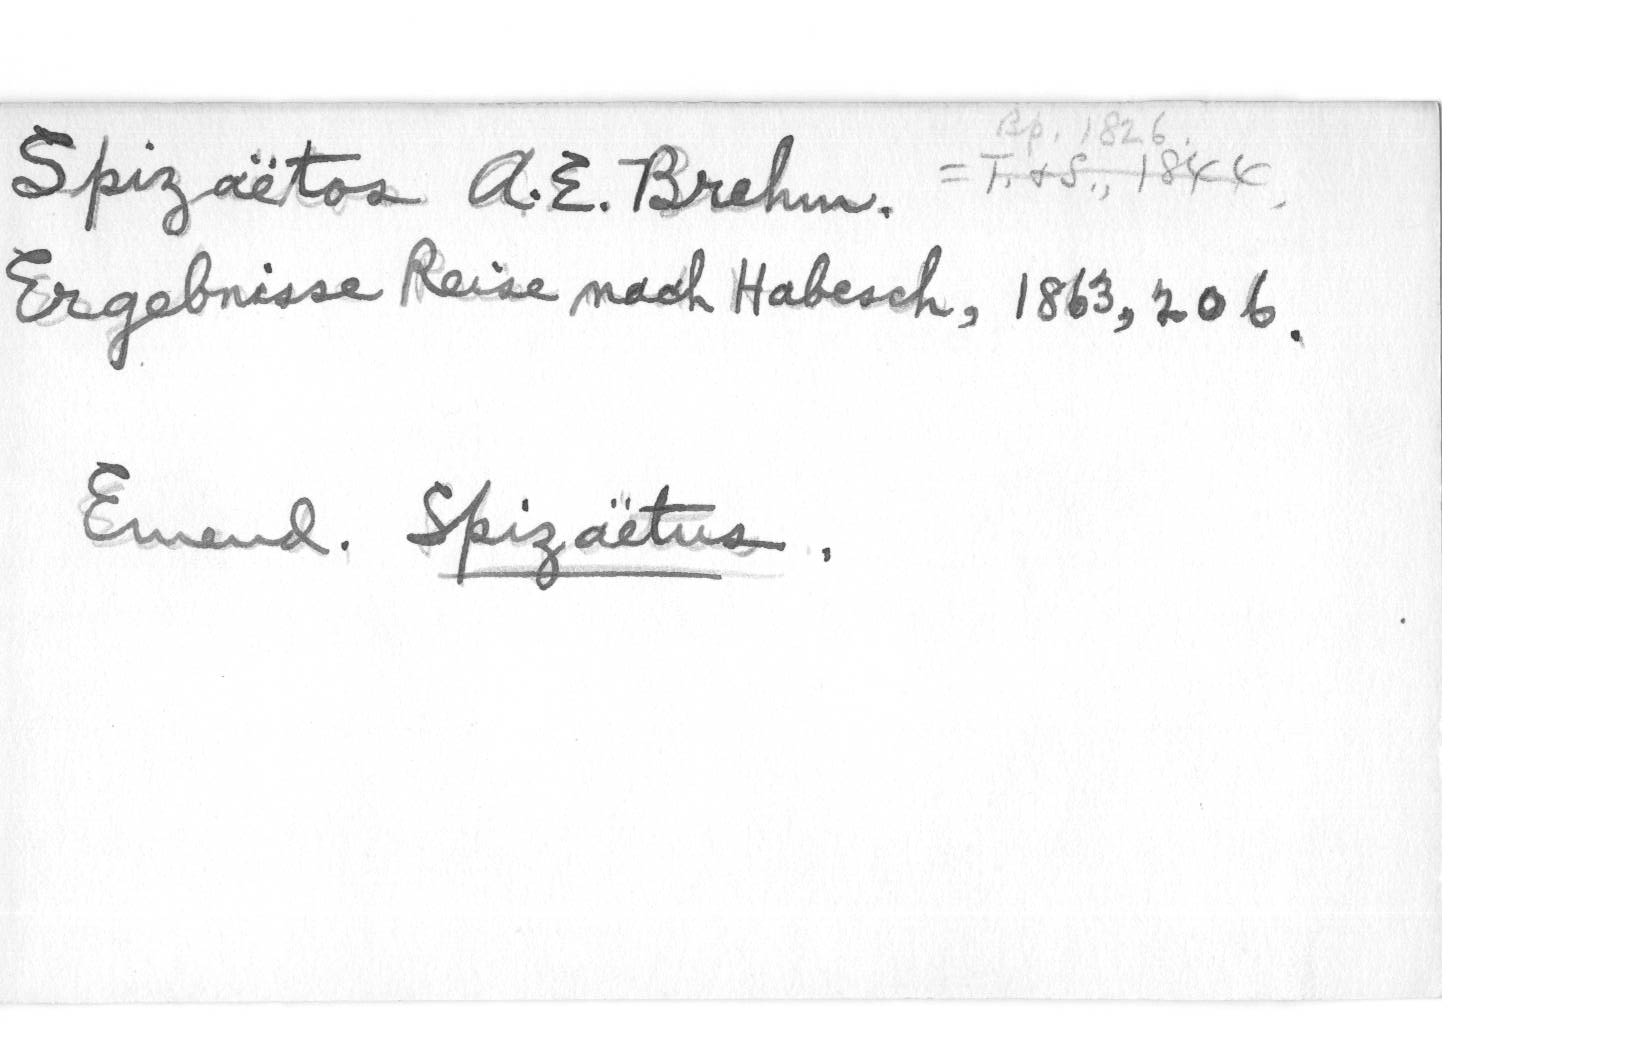 Bp. 1826.
Spizaëtos A.E. Brehm. = T. & S., 1844.
Ergebnisse Reise nach Habesch, 1863, 206.
Emend. Spizaëtus.